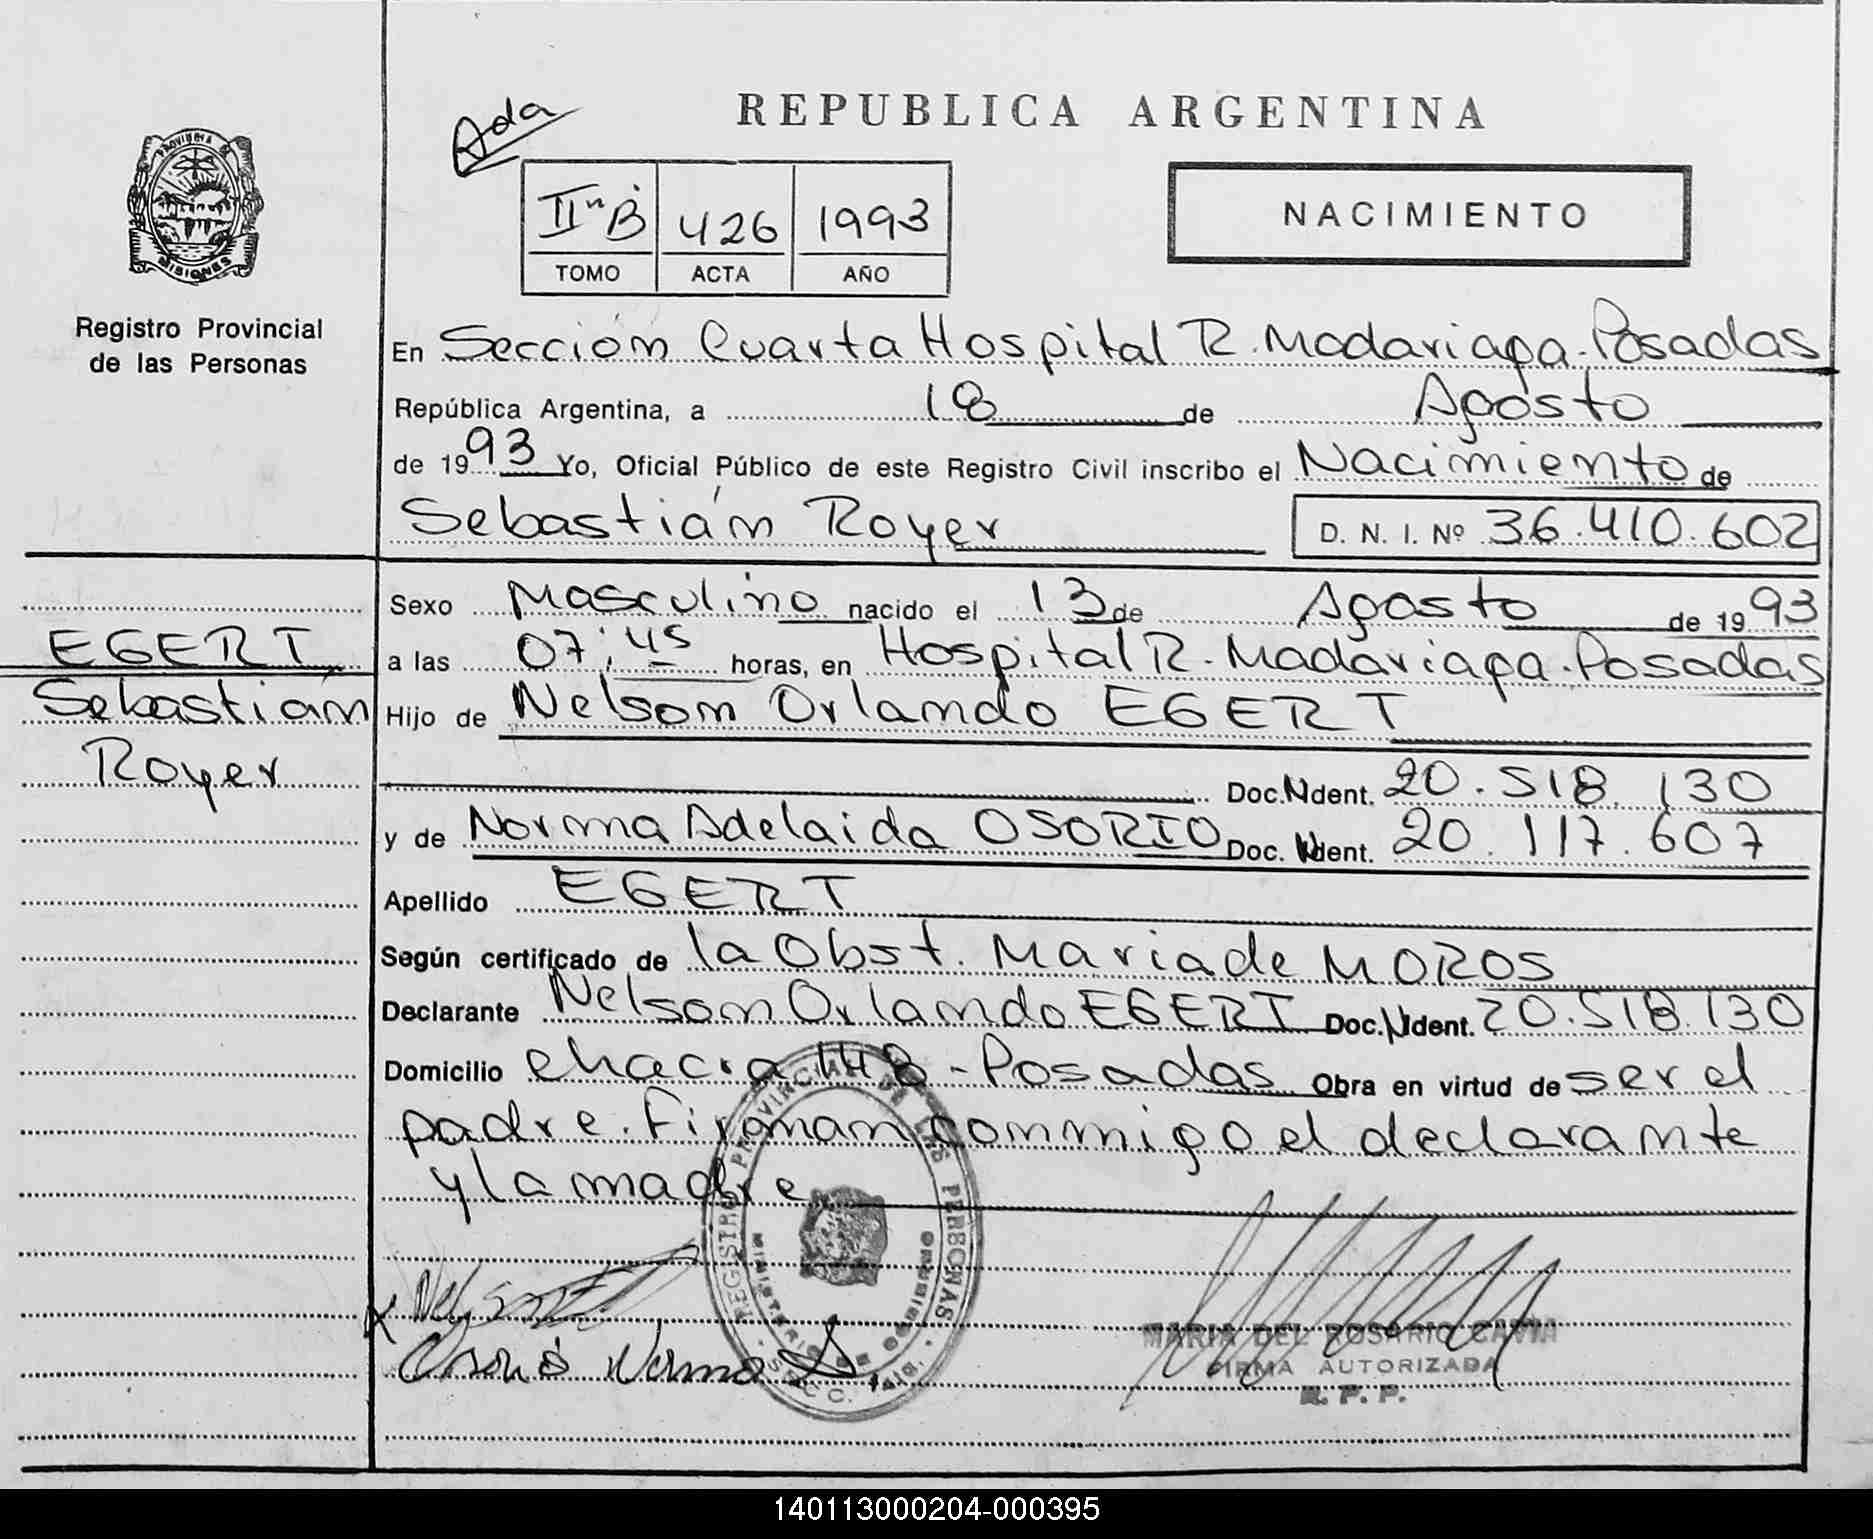 REPUBLICA ARGENTINA
Ada
PROVINCIA DE
MISIONES
Registro Provincial
de las Personas
IIn B 426 1993
TOMO ACTA AÑO
NACIMIENTO
En Sección Cuarta Hospital R. Madariaga. Posadas
República Argentina, a 18 de Agosto
de 1993 Yo, Oficial Público de este Registro Civil inscribo el Nacimiento de
Sebastián Royer D. N. I. Nº 36.410.602
Sexo Masculino nacido el 13 de Agosto de 1993
a las 07:45 horas, en Hospital R. Madariaga. Posadas
Hijo de Nelson Orlando EGERT
Doc. N Ident. 20.518.130
y de Norma Adelaida OSORIO Doc. N Ident. 20.117.607
Apellido EGERT
Según certificado de la Obst. Maria de MOROS
Declarante Nelson Orlando EGERT Doc. N Ident. 20.518.130
Domicilio chacra 148 - Posadas Obra en virtud de ser el
padre. Firman conmigo el declarante
y la madre
EGERT
Sebastián
Royer
REGISTRO PROVINCIAL DE LAS PERSONAS
MINISTERIO DE GOBIERNO
Osorio Norma
MARIA DEL ROSARIO CAVIA
FIRMA AUTORIZADA
R. P. P.
140113000204-000395